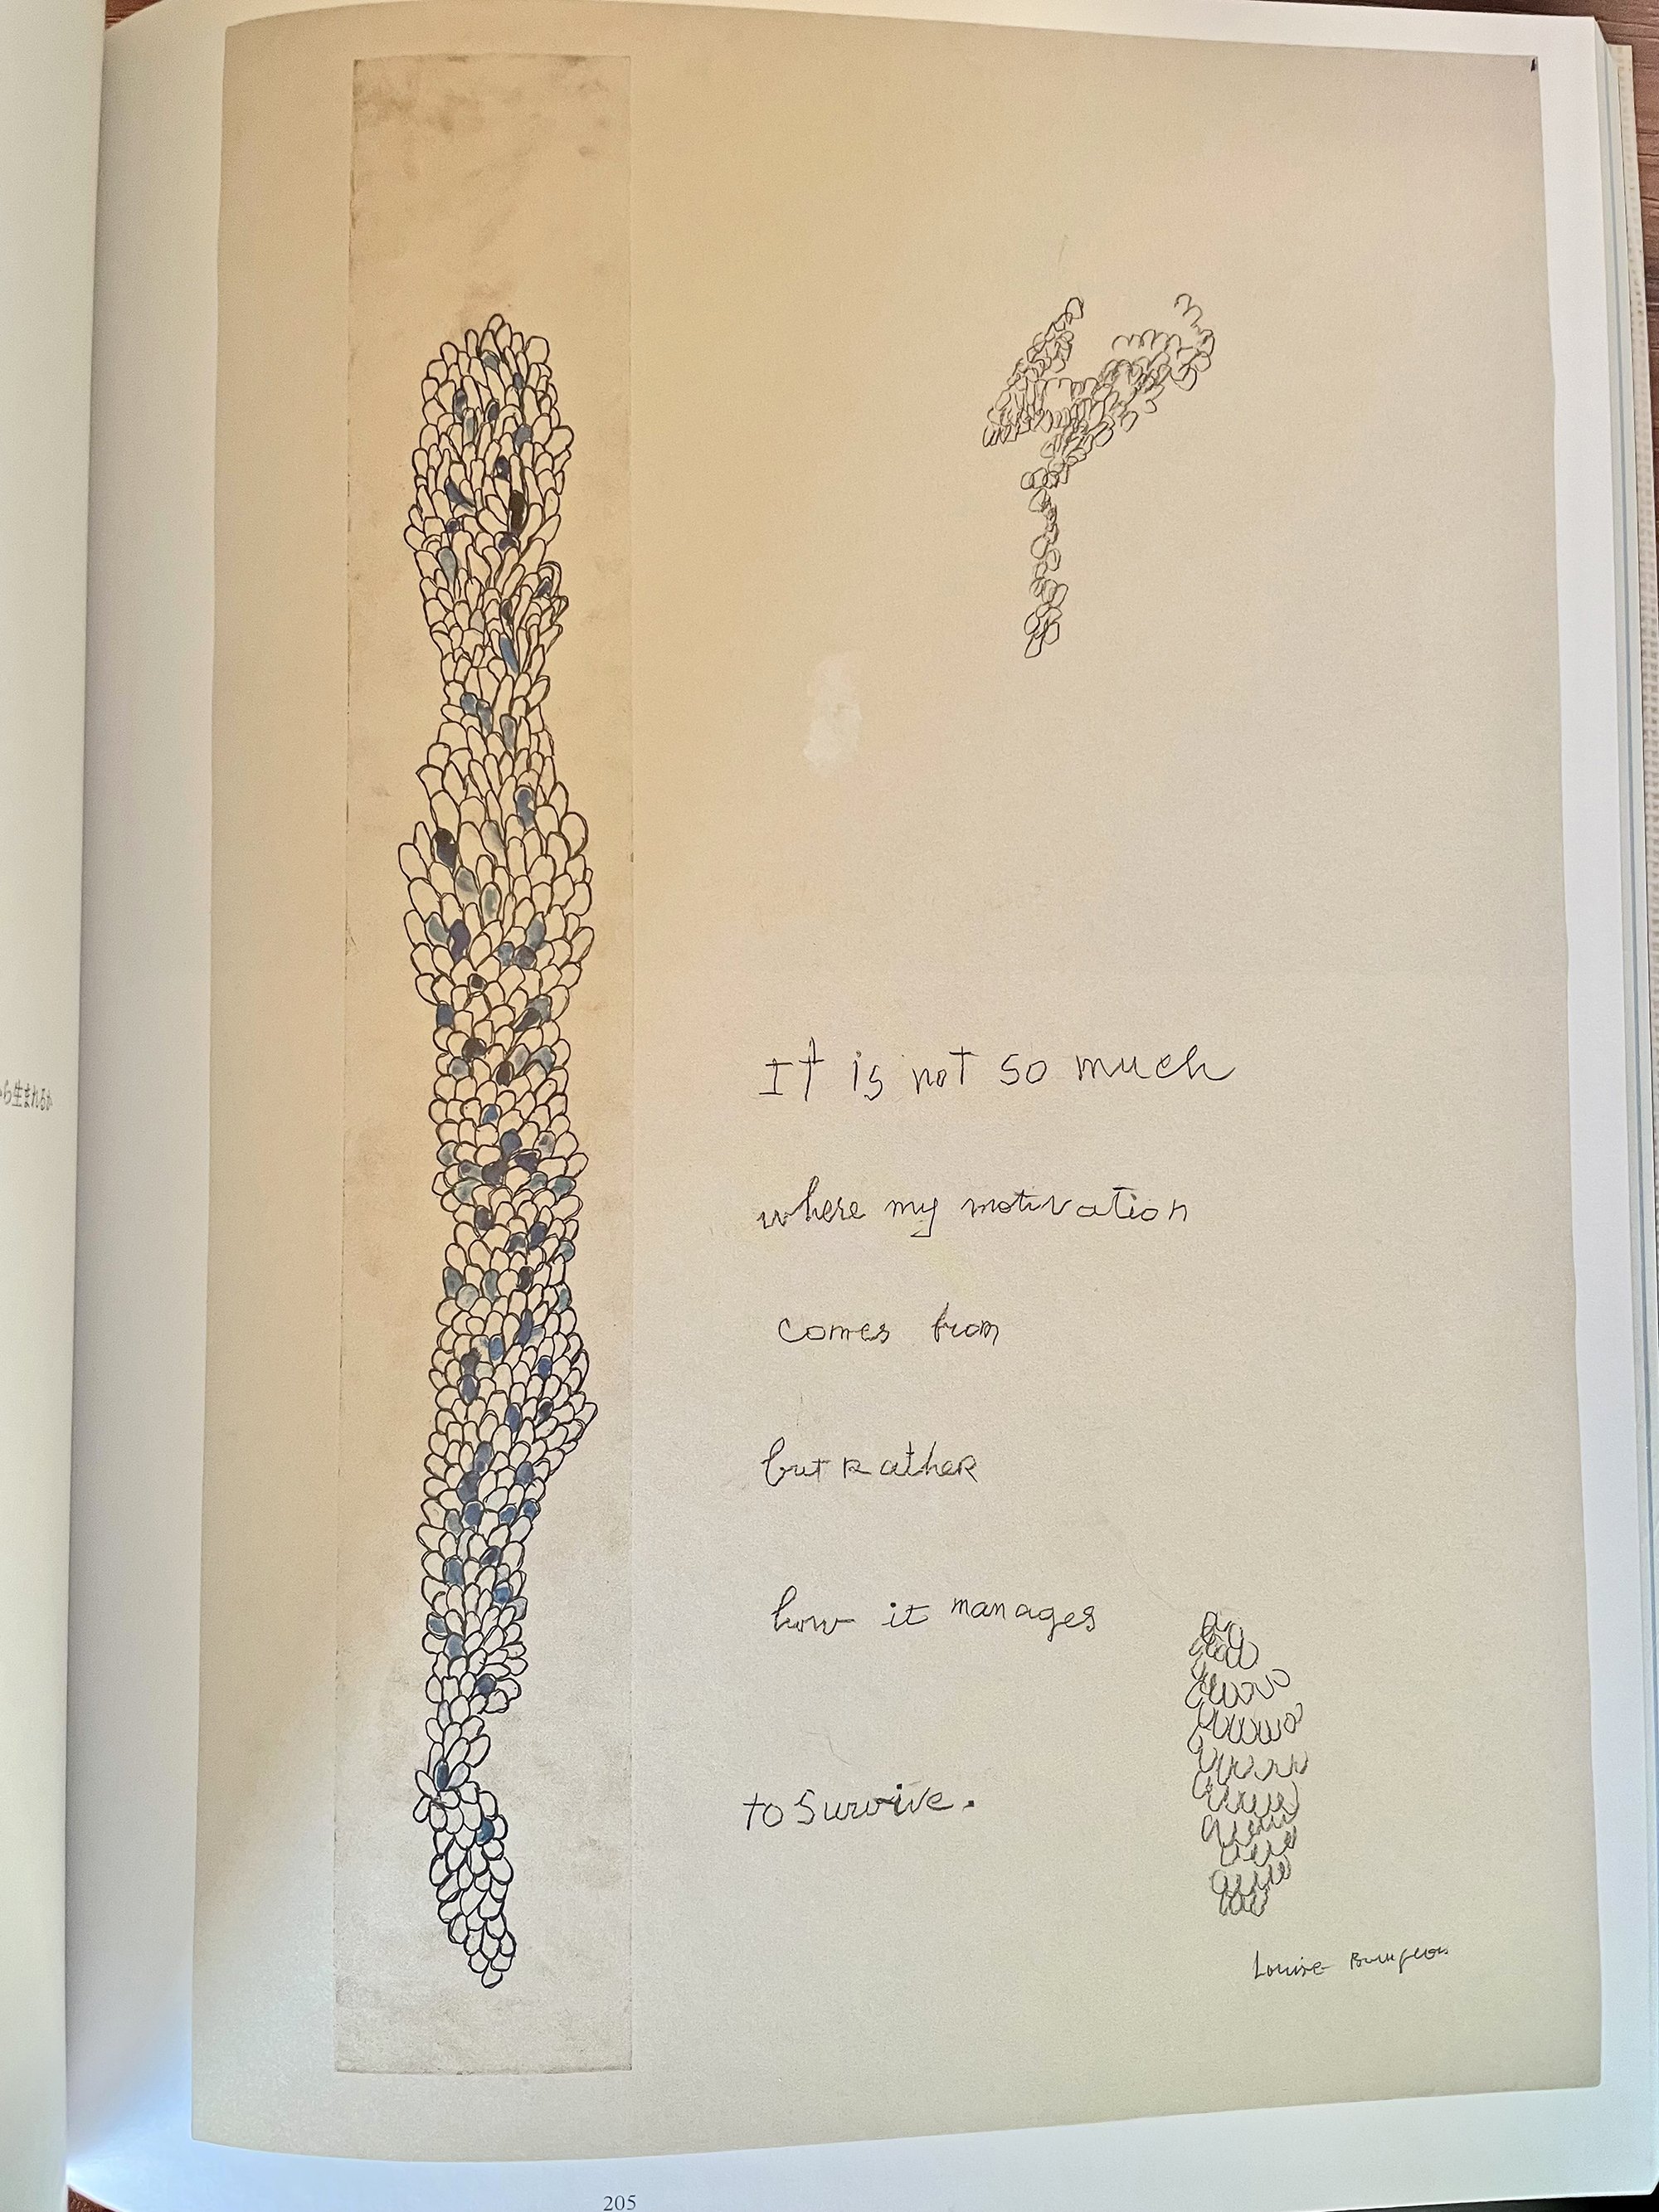 から生まれるか
It is not so much
where my motivation
comes from
but rather
how it manages
to survive.
Louise Bourgeois
205